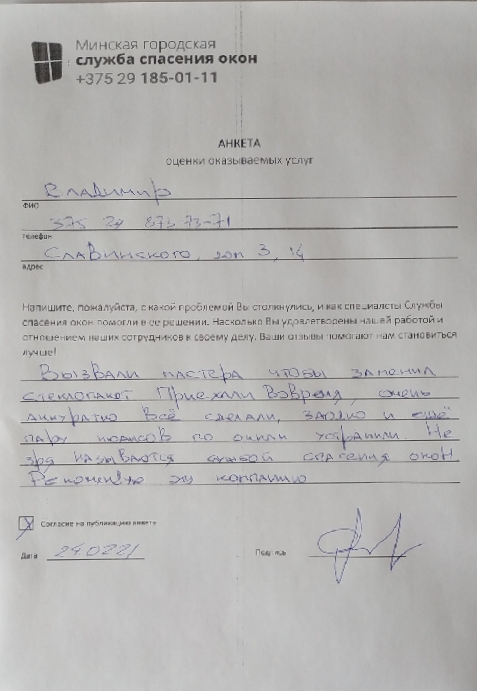 Минская городская
служба спасения окон
+375 29 185-01-11
АНКЕТА
оценки оказываемых услуг
Владимир
ФИО
375 29 873 73-71
телефон
Славинского, дом 3, 14
адрес
Напишите, пожалуйста, с какой проблемой Вы столкнулись, и как специалисты Службы
спасения окон помогли в ее решении. Насколько Вы удовлетворены нашей работой и
отношением наших сотрудников к своему делу. Ваши отзывы помогают нам становиться
лучше!
Вызвали мастера чтобы заменил
стеклопакет Приехали вовремя, очень
аккуратно всё сделали, заодно и ещё
пару нюансов по окнам устранили Не
зря называются службой спасения окон
Рекомендую эту компанию
Согласие на публикацию анкеты
Дата 24.02.21
Подпись